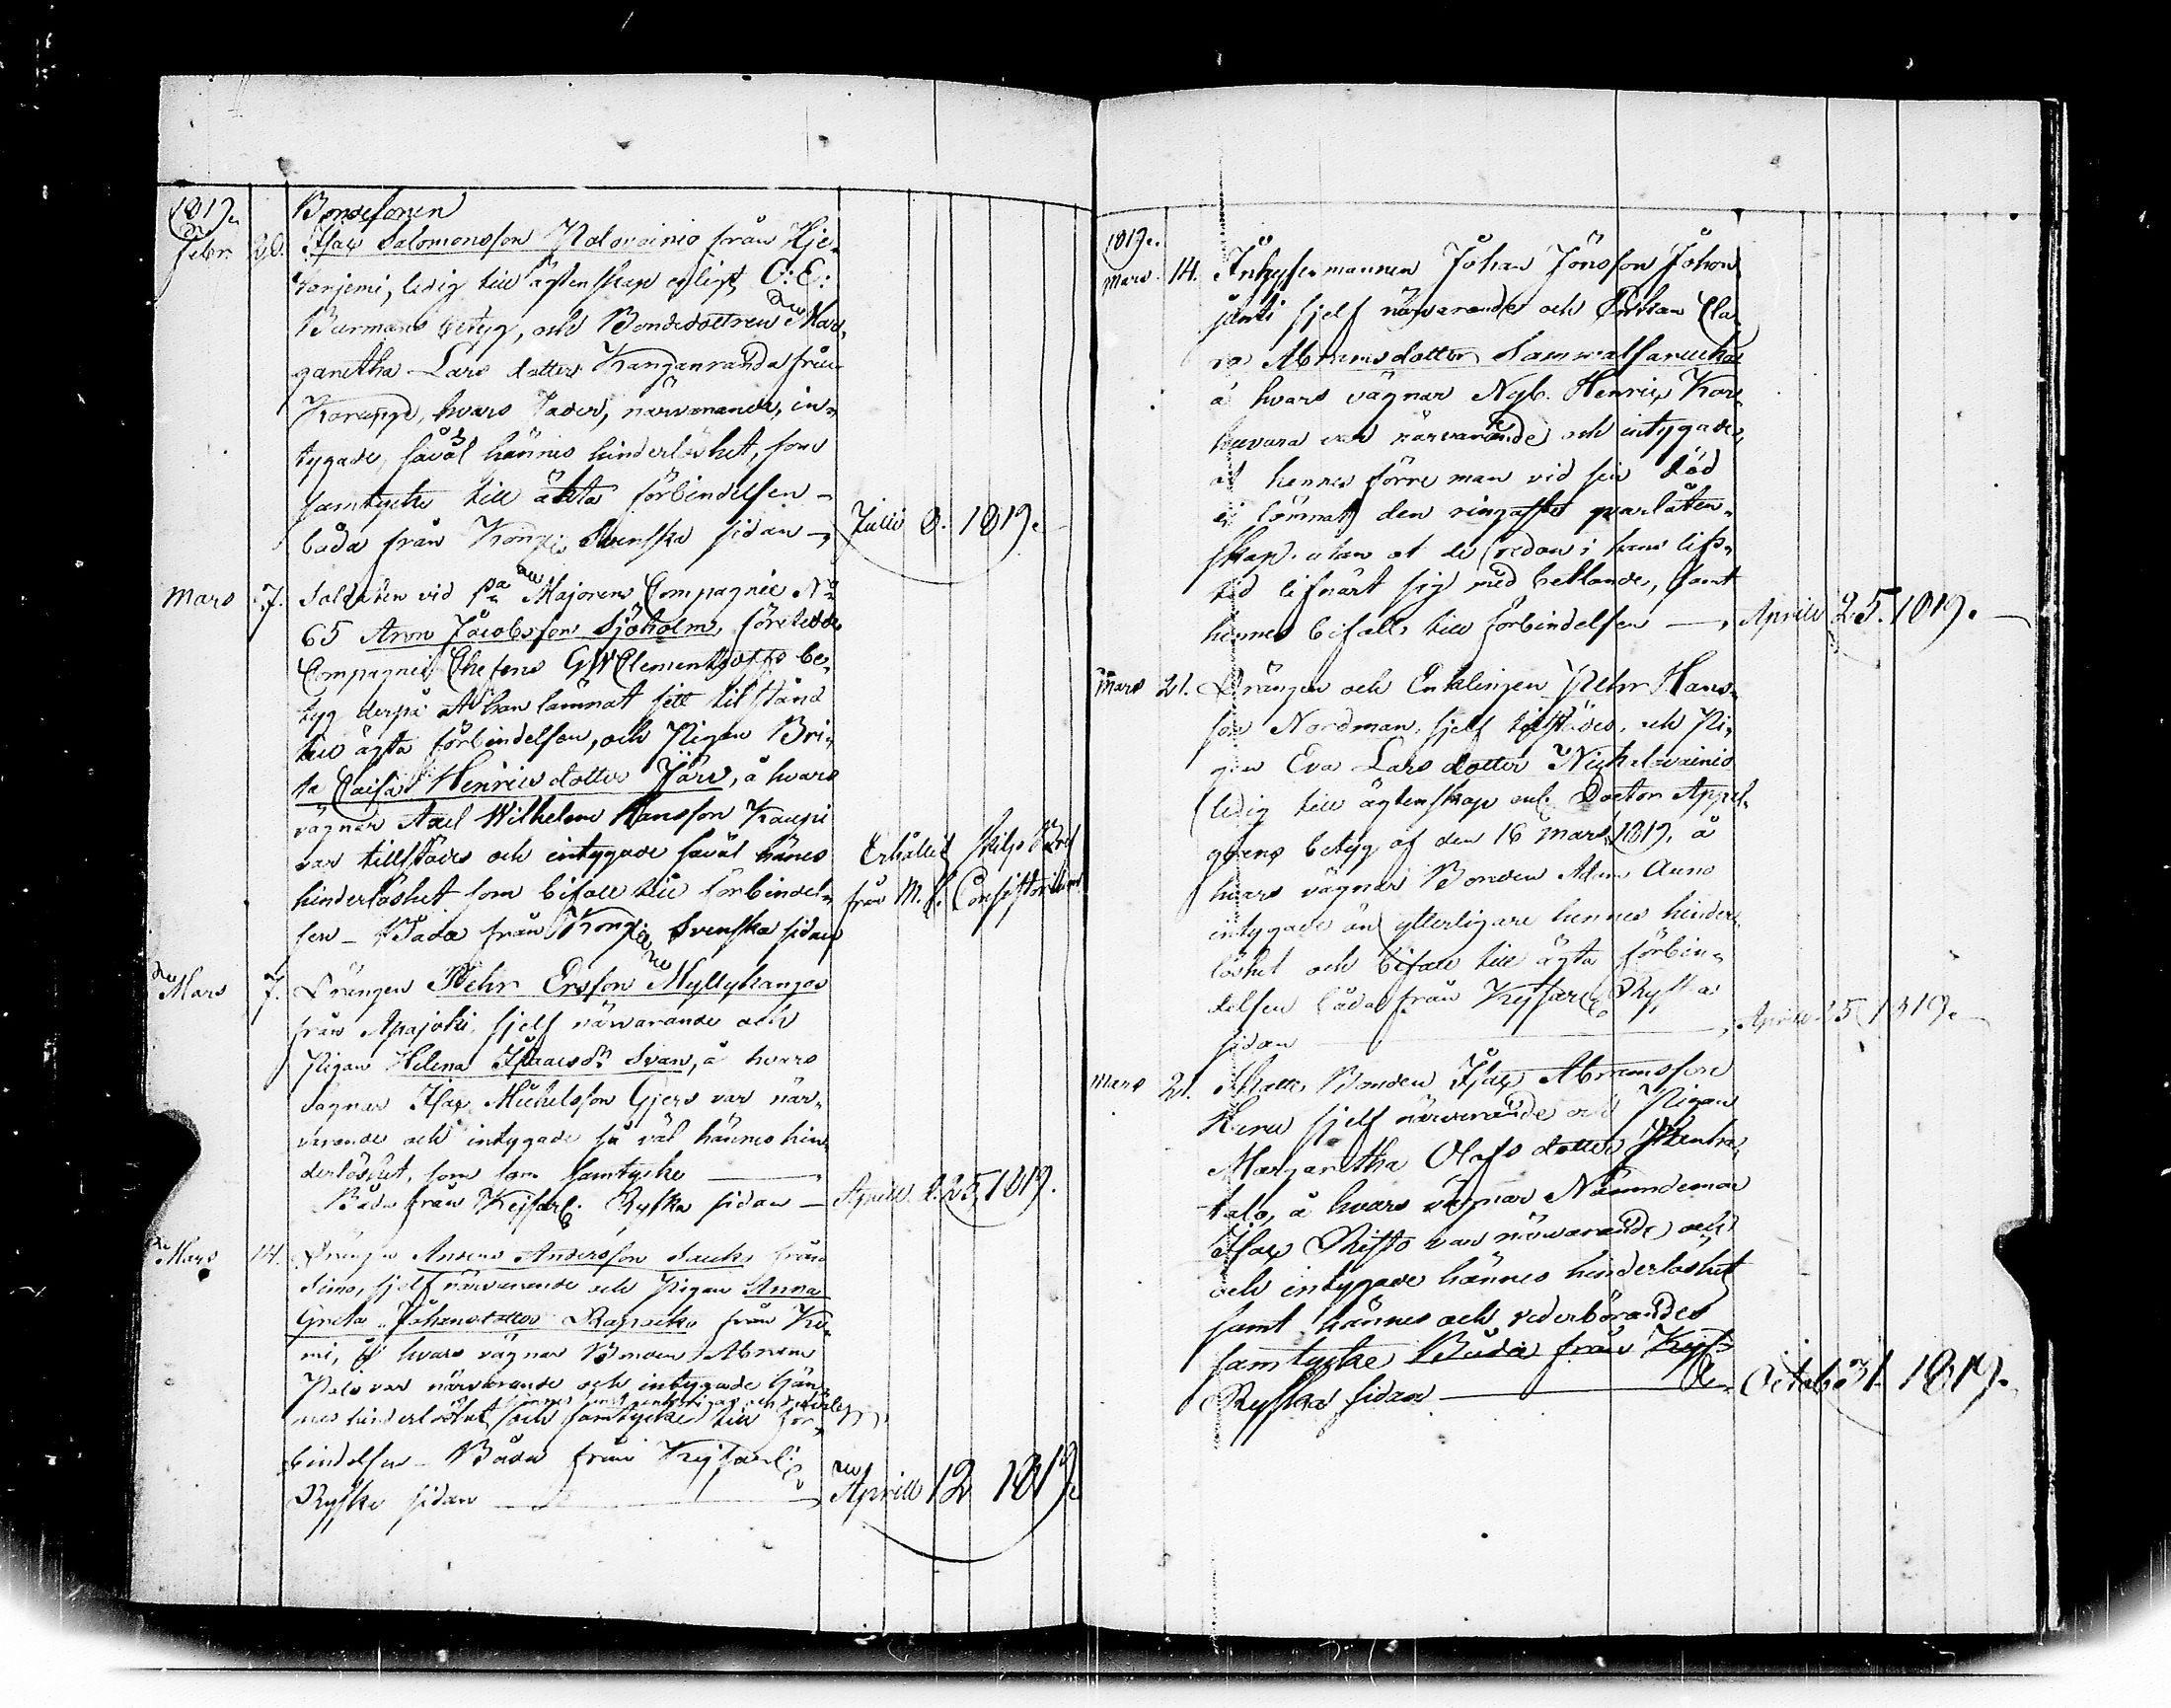 1819.
Bondesonen
Febr. 28. Isac Salomonsson Palovainio från Hje-
tanjemi, ledig till ägtenskap enligt C: E:
Burmans betyg, och Bondedottren Mar-
garetha Lars dotter Kanganranda från
Korpikylä, hvars fader, närvarande, in-
tygade, såväl hännes hinderlöshet, som
samtycke till äkta förbindelsen –
båda från Kongl. Svenska sidan – Julii 8. 1819.
Mars 7. Soldaten vid Majorens Compagnie No
65 Aron Jacobsson Sjöholm, företedde
Compagnie Chefens G W Clementeoffs be-
tyg derpå at han lämnat sitt tilstånd
till ägta förbindelsen, och Pigan Bri-
ta Caisa Henrics dotter Järv, å hvars
vägnar Axel Wilhelm Hansson Kaupi
var tillstädes och intygade såväl hänes Erhållit Skiljo Bref
hinderlöshet som bifall till förbindel- från M. V. Consistorium
sen – Båda från Kongl. Svenska sidan
Mars 7. Drängen Pehr Ersson Myllykangas
från Apajoki, sjelf närvarande och
Pigan Helena Isaacsdr Svan, å hvars
vägnar Isac Michelsson Gjers var när-
varande och intygade så väl hännes hin-
derlöshet, som samtycke –
Båda från Kejserl. Ryska sidan – Aprill d. 25 1819.
Mars 14. Drängen Anders Andersson Sauko från
Simo, sjelf närvarande och Pigan Anna
Greta Johansdotter Rapaiko från Ke-
mi, å hvars vägnar Bonden Abram
Palo var närvarande och intygade hän-
nes hinderlöshet och samtycke till för-
bindelsen – Båda från Kejserl.
Ryska sidan – Aprill 12 1819.
1819.
Mars 14. Inhysesmannen Johan Jönsson Johon
junti sjelf närvarande och Enkan Cla-
ra Abramsdotter
å hvars vägnar Nyb. Henric Kor-
havara var närvarande och intygade,
at hennes förre man vid sin död
ej lämnat den ringaste qvarlåten-
skap. utan at de redan i hans lifs-
tid lifnärt sig med bettlande, samt
hennes bifall till förbindelsen – Aprill 25. 1819.
Mars 21. Drängen och Enklingen Pehr Hans-
son Nordman, sjelf tilstädes, och Pi-
gan Eva Lars dotter
ledig till ägtenskap enl. Doctor Appel-
grens betyg af den 16 Mars 1819, å
hvars vägnar Bonden Adam Auno
intygade än ytterligare hennes hinder-
löshet och bifall till ägta förbin-
delsen båda från Kejserl. Ryska
sidan – Aprill 25 1819.
Mars 21. Skatte Bonden Isac Abramsson
sjelf närvarande och Pigan
Margaretha Olofs dotter
talo, å hvars vägnar Nämndeman
Isac Risto var närvarande och
och intygade hännes hinderlöshet
samt hännes och vederbörandes
samtycke Båda från Kejs.
Ryska sidan – Octob. 31. 1819.